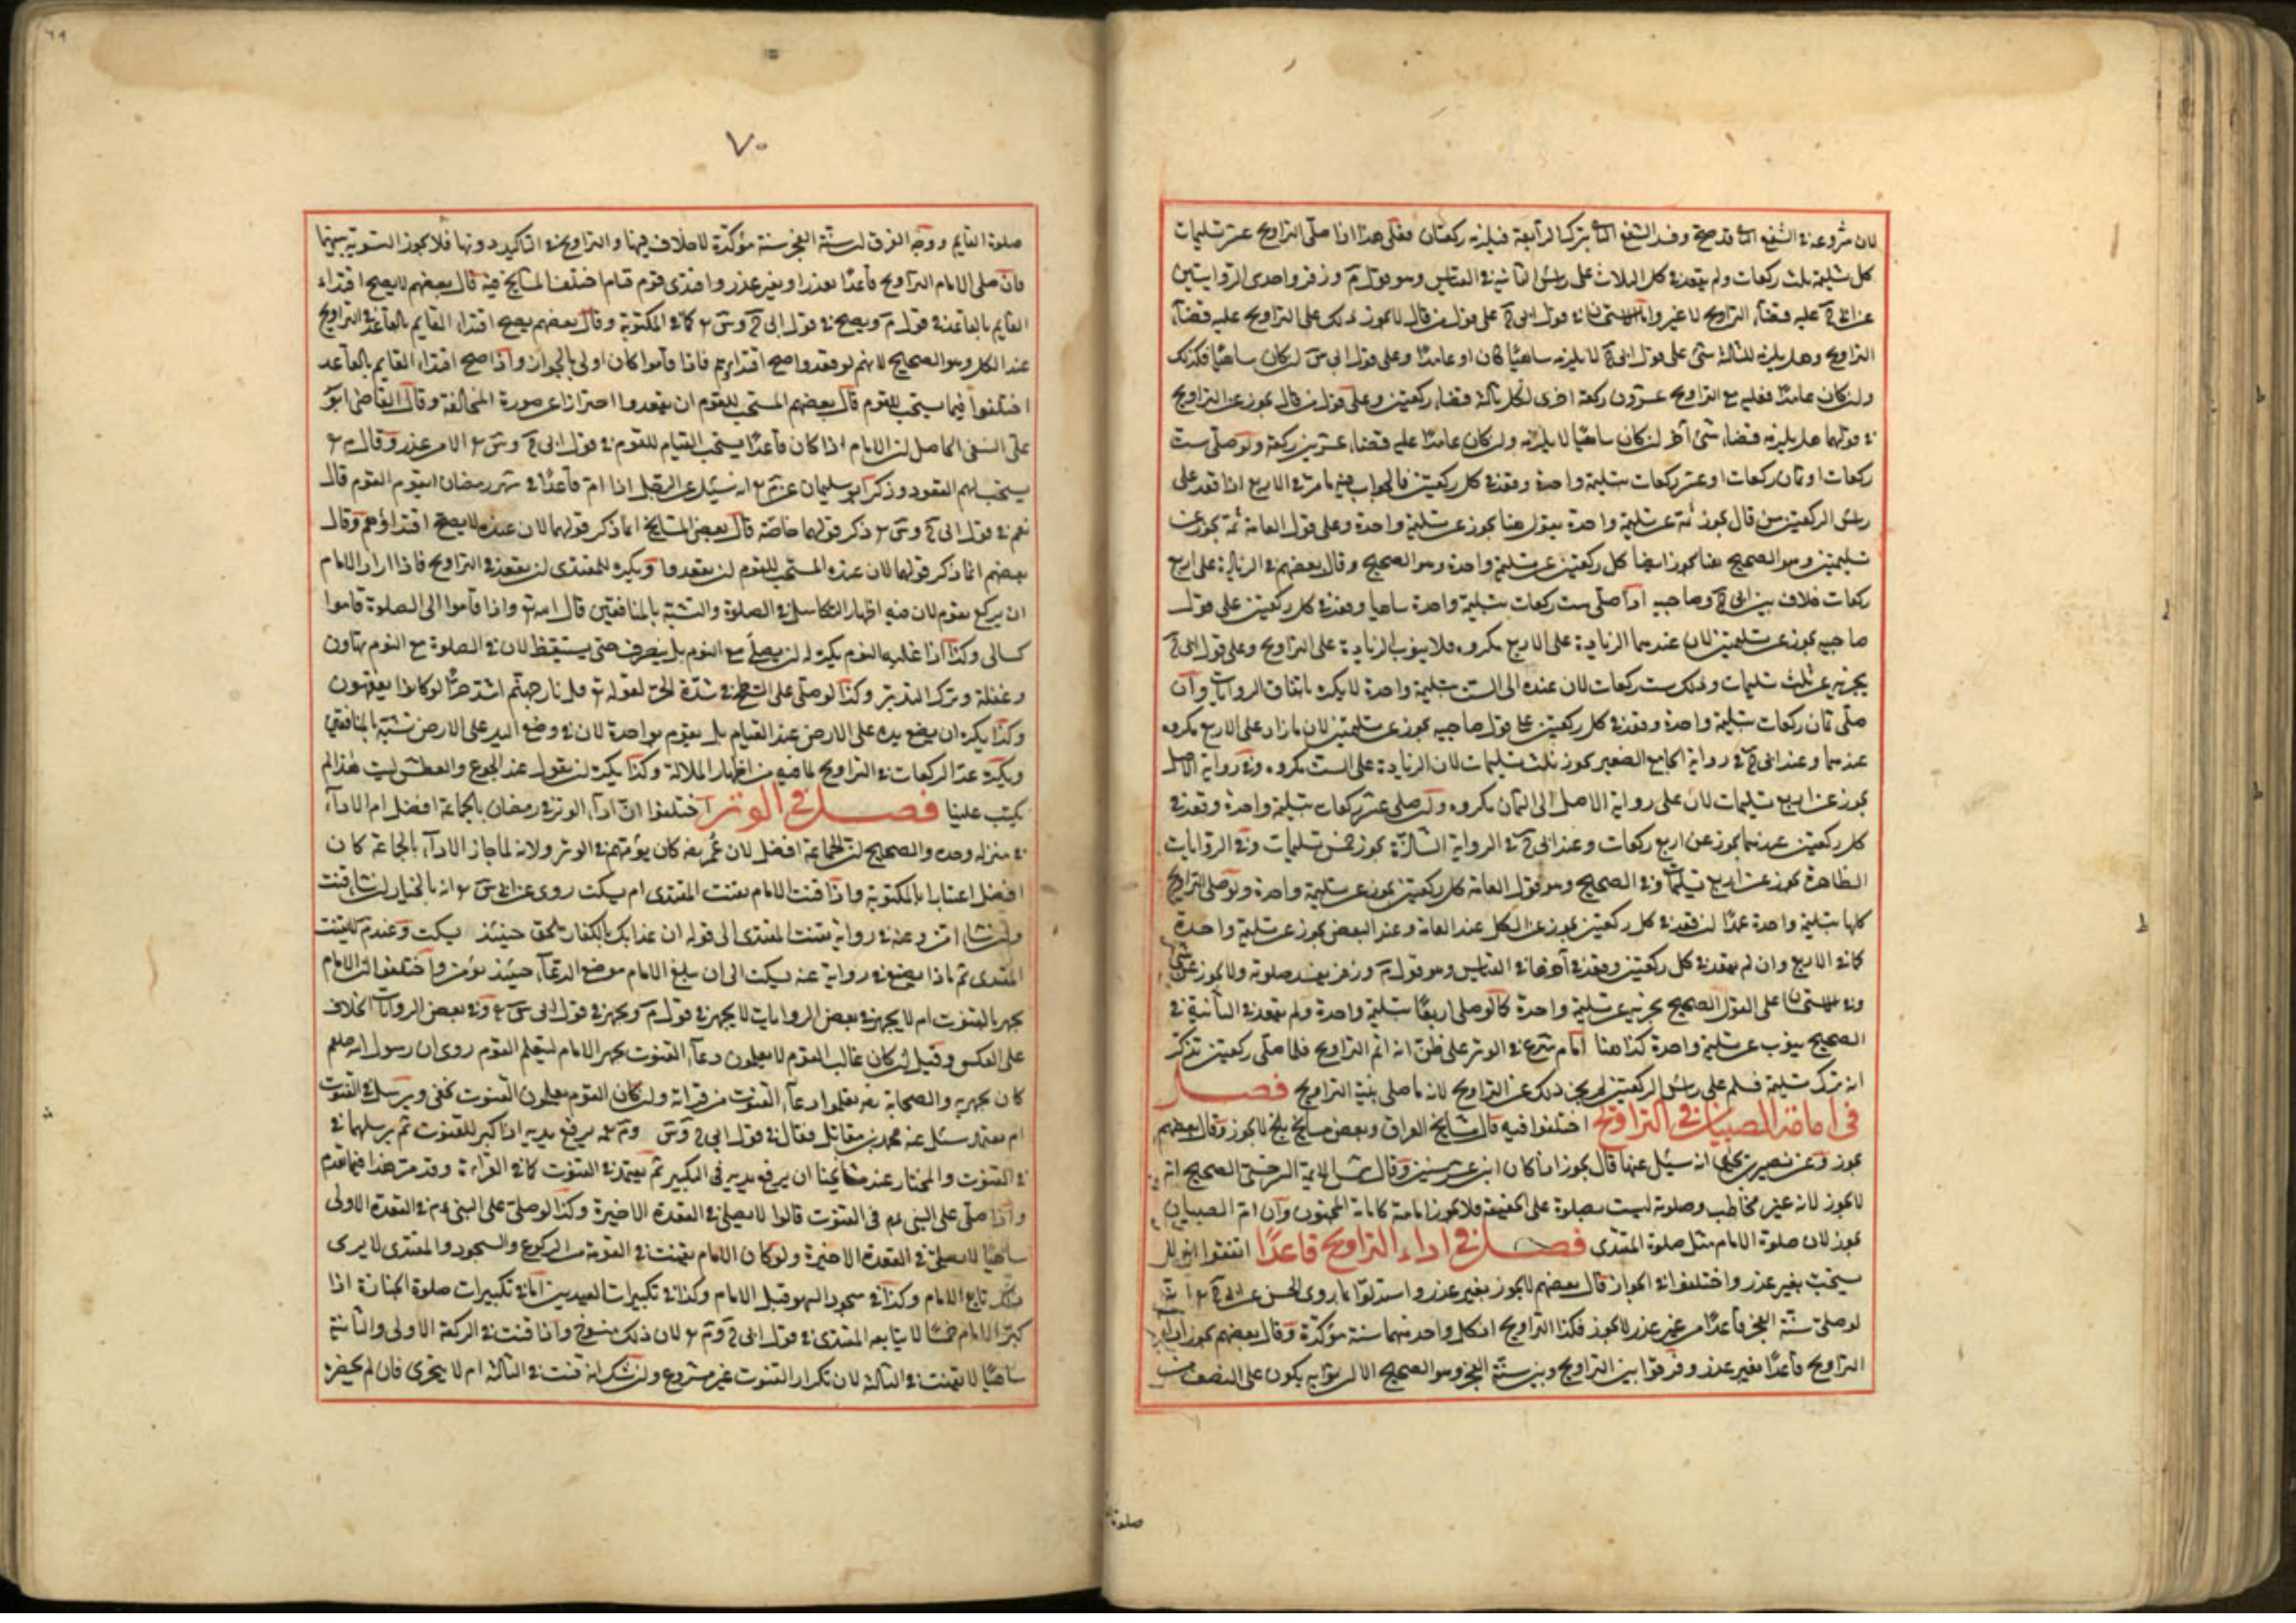 لان شروعه في الشفع الثاني قد صح وفسد الشفع الثاني بترك الرابعة فيلزمه ركعتان فعلى هذا اذا صلى التراويح عشر تسليمات
كل تسليمة ثلث ركعات ولم يقعد في كل الثلاث على رأس الثانية في القياس وهو قول م وزفر واحدى الروايتين
عن ابي ح عليه قضاء التراويح لا غير واما الاستحسان في قول ابي ح على قول من قال لا يجوز ذلك على التراويح عليه قضاء
التراويح وهل يلزمه للثالثة شئ على قول ابي ح لا يلزمه ساهيا كان او عامدا وعلى قول ابي س ان كان ساهيا فكذلك
وان كان عامدا فعليه مع التراويح عشرون ركعة اخرى لكل ثالثة قضاء ركعتين وعلى قول من قال يجوز عن التراويح
في قولهما هل يلزمه قضاء شئ آخر ان كان ساهيا لا يلزمه وان كان عامدا عليه قضاء عشرين ركعة ولو صلى ست
ركعات او ثمان ركعات او عشر ركعات بتسليمة واحدة وقعد في كل ركعتين فالجواب فيه ما مر في الاربع اذا قعد على
رأس الركعتين من قال يجوز ثمة عن تسليمة واحدة يقول هنا يجوز عن تسليمة واحدة وعلى قول العامة ثمة يجوز عن
تسليمتين وهو الصحيح هنا يجوز ايضا كل ركعتين عن تسليمة واحدة وهو الصحيح وقال بعضهم في الزيادة على اربع
ركعات خلاف بين ابي ح وصاحبيه اذا صلى ست ركعات بتسليمة واحدة ساهيا وقعد في كل ركعتين على قول
صاحبيه يجوز عن تسليمتين لان عندهما الزيادة على الاربع مكروه فلا ينوب الزيادة على التراويح وعلى قول ابي ح
يجزيه عن ثلث تسليمات وذلك ست ركعات لان عنده الى الست بتسليمة واحدة لا يكره باتفاق الروايات وان
صلى ثمان ركعات بتسليمة واحدة وقعد في كل ركعتين على قول صاحبيه يجوز عن تسليمتين لان ما زاد على الاربع مكروه
عندهما وعند ابي ح في رواية الجامع الصغير يجوز ثلث تسليمات لان الزيادة على الست مكروه وفي رواية الاصل
يجوز عن اربع تسليمات لان على رواية الاصل الى الثمان مكروه وان صلى عشر ركعات بتسليمة واحدة وقعد في
كل ركعتين عندهما يجوز عن اربع ركعات وعند ابي ح في الرواية الشاذة يجوز خمس تسليمات وفي الروايات
الظاهرة يجوز عن اربع تسليمات وفي الصحيح وهو قول العامة كل ركعتين يجوز عن تسليمة واحدة ولو صلى التراويح
كلها بتسليمة واحدة عمدا ان قعد في كل ركعتين يجوز عن الكل عند العامة وعند البعض يجوز عن تسليمة واحدة
كما في الاربع وان لم يقعد في كل ركعتين وقعد في آخرها في القياس وهو قول م وزفر يفسد صلوته ولا يجوز عن شئ
وفي الاستحسان على القول الصحيح يجزيه عن تسليمة واحدة كما لو صلى اربعا بتسليمة واحدة ولم يقعد في الثانية في
الصحيح ينوب عن تسليمة واحدة كذا هنا امام شرع في الوتر على ظن انه اتم التراويح فلما صلى ركعتين تذكر
انه ترك تسليمة فسلم على رأس الركعتين لم يجز ذلك عن التراويح لانه ما صلى بنية التراويح فصل
في امامة الصبيان في التراويح اختلفوا فيه قال مشايخ العراق وبعض مشايخ بلخ لا يجوز وقال بعضهم
يجوز وعن نصير بن يحيى انه سئل عنها قال يجوز اذا كان ابن عشر سنين وقال شمس الائمة السرخسي الصحيح انه
لا يجوز لانه غير مخاطب وصلوته ليست بصلوة على الحقيقة فلا يجوز امامته كامامة المجنون وان ام الصبيان
يجوز لان صلوة الامام مثل صلوة المقتدى فصل في اداء التراويح قاعدا اتفقوا انه لا
يستحب بغير عذر واختلفوا في الجواز قال بعضهم لا يجوز بغير عذر واستدلوا بما روى الحسن عن ابي ح انه
لو صلى سنة الفجر قاعدا من غير عذر لا يجوز فكذا التراويح اذ كل واحد منهما سنة مؤكدة وقال بعضهم يجوز اداء
التراويح قاعدا بغير عذر وفرقوا بين التراويح وبين سنة الفجر وهو الصحيح الا ان ثوابه يكون على النصف من
صلوة
٧٠
صلوة القايم ووجه الفرق ان سنة الفجر سنة مؤكدة لا خلاف فيها والتراويح في التاكيد دونها فلا يجوز التسوية بينهما
فان صلى الامام التراويح قاعدا بعذر او بغير عذر واقتدى قوم قيام اختلف المشايخ فيه قال بعضهم لا يصح اقتداء
القايم بالقاعد في قول م ويصح في قول ابي ح وس كما في المكتوبة وقال بعضهم يصح اقتداء القايم بالقاعد في التراويح
عند الكل وهو الصحيح لانهم لو قعدوا صح اقتداؤهم فاذا قاموا كان اولى بالجواز واذا صح اقتداء القايم بالقاعد
اختلفوا فيما يستحب للقوم قال بعضهم المستحب للقوم ان يقعدوا احترازا عن صورة المخالفة وقال القاضي ابو
علي النسفي الحاصل ان الامام اذا كان قاعدا يستحب القيام للقوم في قول ابي ح وس الا من عذر وقال م
يستحب لهم القعود وذكر ابو سليمان عن م انه سئل عن الرجل اذا ام قاعدا في شهر رمضان ايقوم القوم قال
نعم في قول ابي ح وس ذكر قولهما خاصة قال بعض المشايخ انما ذكر قولهما لان عنده لا يصح اقتداؤهم وقال
بعضهم انما ذكر قولهما لان عنده المستحب للقوم ان يقعدوا ويكره للمقتدى ان يقعد في التراويح فاذا اراد الامام
ان يركع يقوم لان فيه اظهار التكاسل في الصلوة والتشبه بالمنافقين قال الله تع واذا قاموا الى الصلوة قاموا
كسالى وكذا اذا غلبه النوم يكره له ان يصلي مع النوم بل ينصرف حتى يستيقظ لان في الصلوة مع النوم تهاون
وغفلة وترك التدبر وكذا لو صلى على السطح في شدة الحر لقوله تع قل نار جهنم اشد حرا لو كانوا يفقهون
وكذا يكره ان يضع يده على الارض عند القيام بل يقوم بواحدة لان في وضع اليد على الارض تشبه بالمنافقين
ويكره عد الركعات في التراويح لما فيه من اظهار الملالة وكذا يكره ان يقول عند الجوع والعطش ليت هذا لم
يكتب علينا فصل في الوتر اختلفوا ان اداء الوتر في رمضان بالجماعة افضل ام الاداء
في منزله وحده والصحيح ان الجماعة افضل لان عمر رضه كان يؤمهم في الوتر ولانه لما جاز الاداء بالجماعة كان
افضل اعتبارا بالمكتوبة واذا قنت الامام يقنت المقتدى ام يسكت روى عن ابي س انه بالخيار ان شاء قنت
وان شاء امن وعنه في رواية يقنت المقتدى الى قوله ان عذابك بالكفار ملحق حينئذ يسكت وعند م لا يقنت
المقتدى ثم ماذا يصنع في رواية عنه يسكت الى ان يبلغ الامام موضع الدعاء حينئذ يؤمن واختلفوا ان الامام
يجهر بالقنوت ام لا يجهر في بعض الروايات لا يجهر في قول م ويجهر في قول ابي س وفي بعض الروايات الخلاف
على العكس وقيل ان كان غالب القوم لا يعلمون دعاء القنوت يجهر الامام ليتعلم القوم روى ان رسول الله صلعم
كان يجهر به والصحابة رضه تعلموا دعاء القنوت من قراته وان كان القوم يعلمون القنوت يخفى ويرسل في القنوت
ام يعتمد سئل عنه محمد بن مقاتل فقال في قول ابي ح وس وم يرفع يديه اذا كبر للقنوت ثم يرسلهما في
في القنوت والمختار عند مشايخنا ان يرفع يديه في التكبير ثم يعتمد في القنوت كما في القراءة وقد مر هذا فيما تقدم
واذا صلى على النبي عم في القنوت قالوا لا يصلى في القعدة الاخيرة وكذا لو صلى على النبي عم في القعدة الاولى
ساهيا لا يصلى في القعدة الاخيرة ولو كان الامام يقنت في القومة من الركوع والسجود والمقتدى لا يرى
ذلك تابع الامام وكذا في سجود السهو قبل الامام وكذا في تكبيرات العيدين اما في تكبيرات صلوة الجنازة اذا
كبر الامام خمسا لا يتابعه المقتدى في قول ابي ح وم لان ذلك منسوخ واذا قنت في الركعة الاولى والثانية
ساهيا لا يقنت في الثالثة لان تكرار القنوت غير مشروع وان شك انه قنت في الثالثة ام لا يتحرى فان لم يحضره